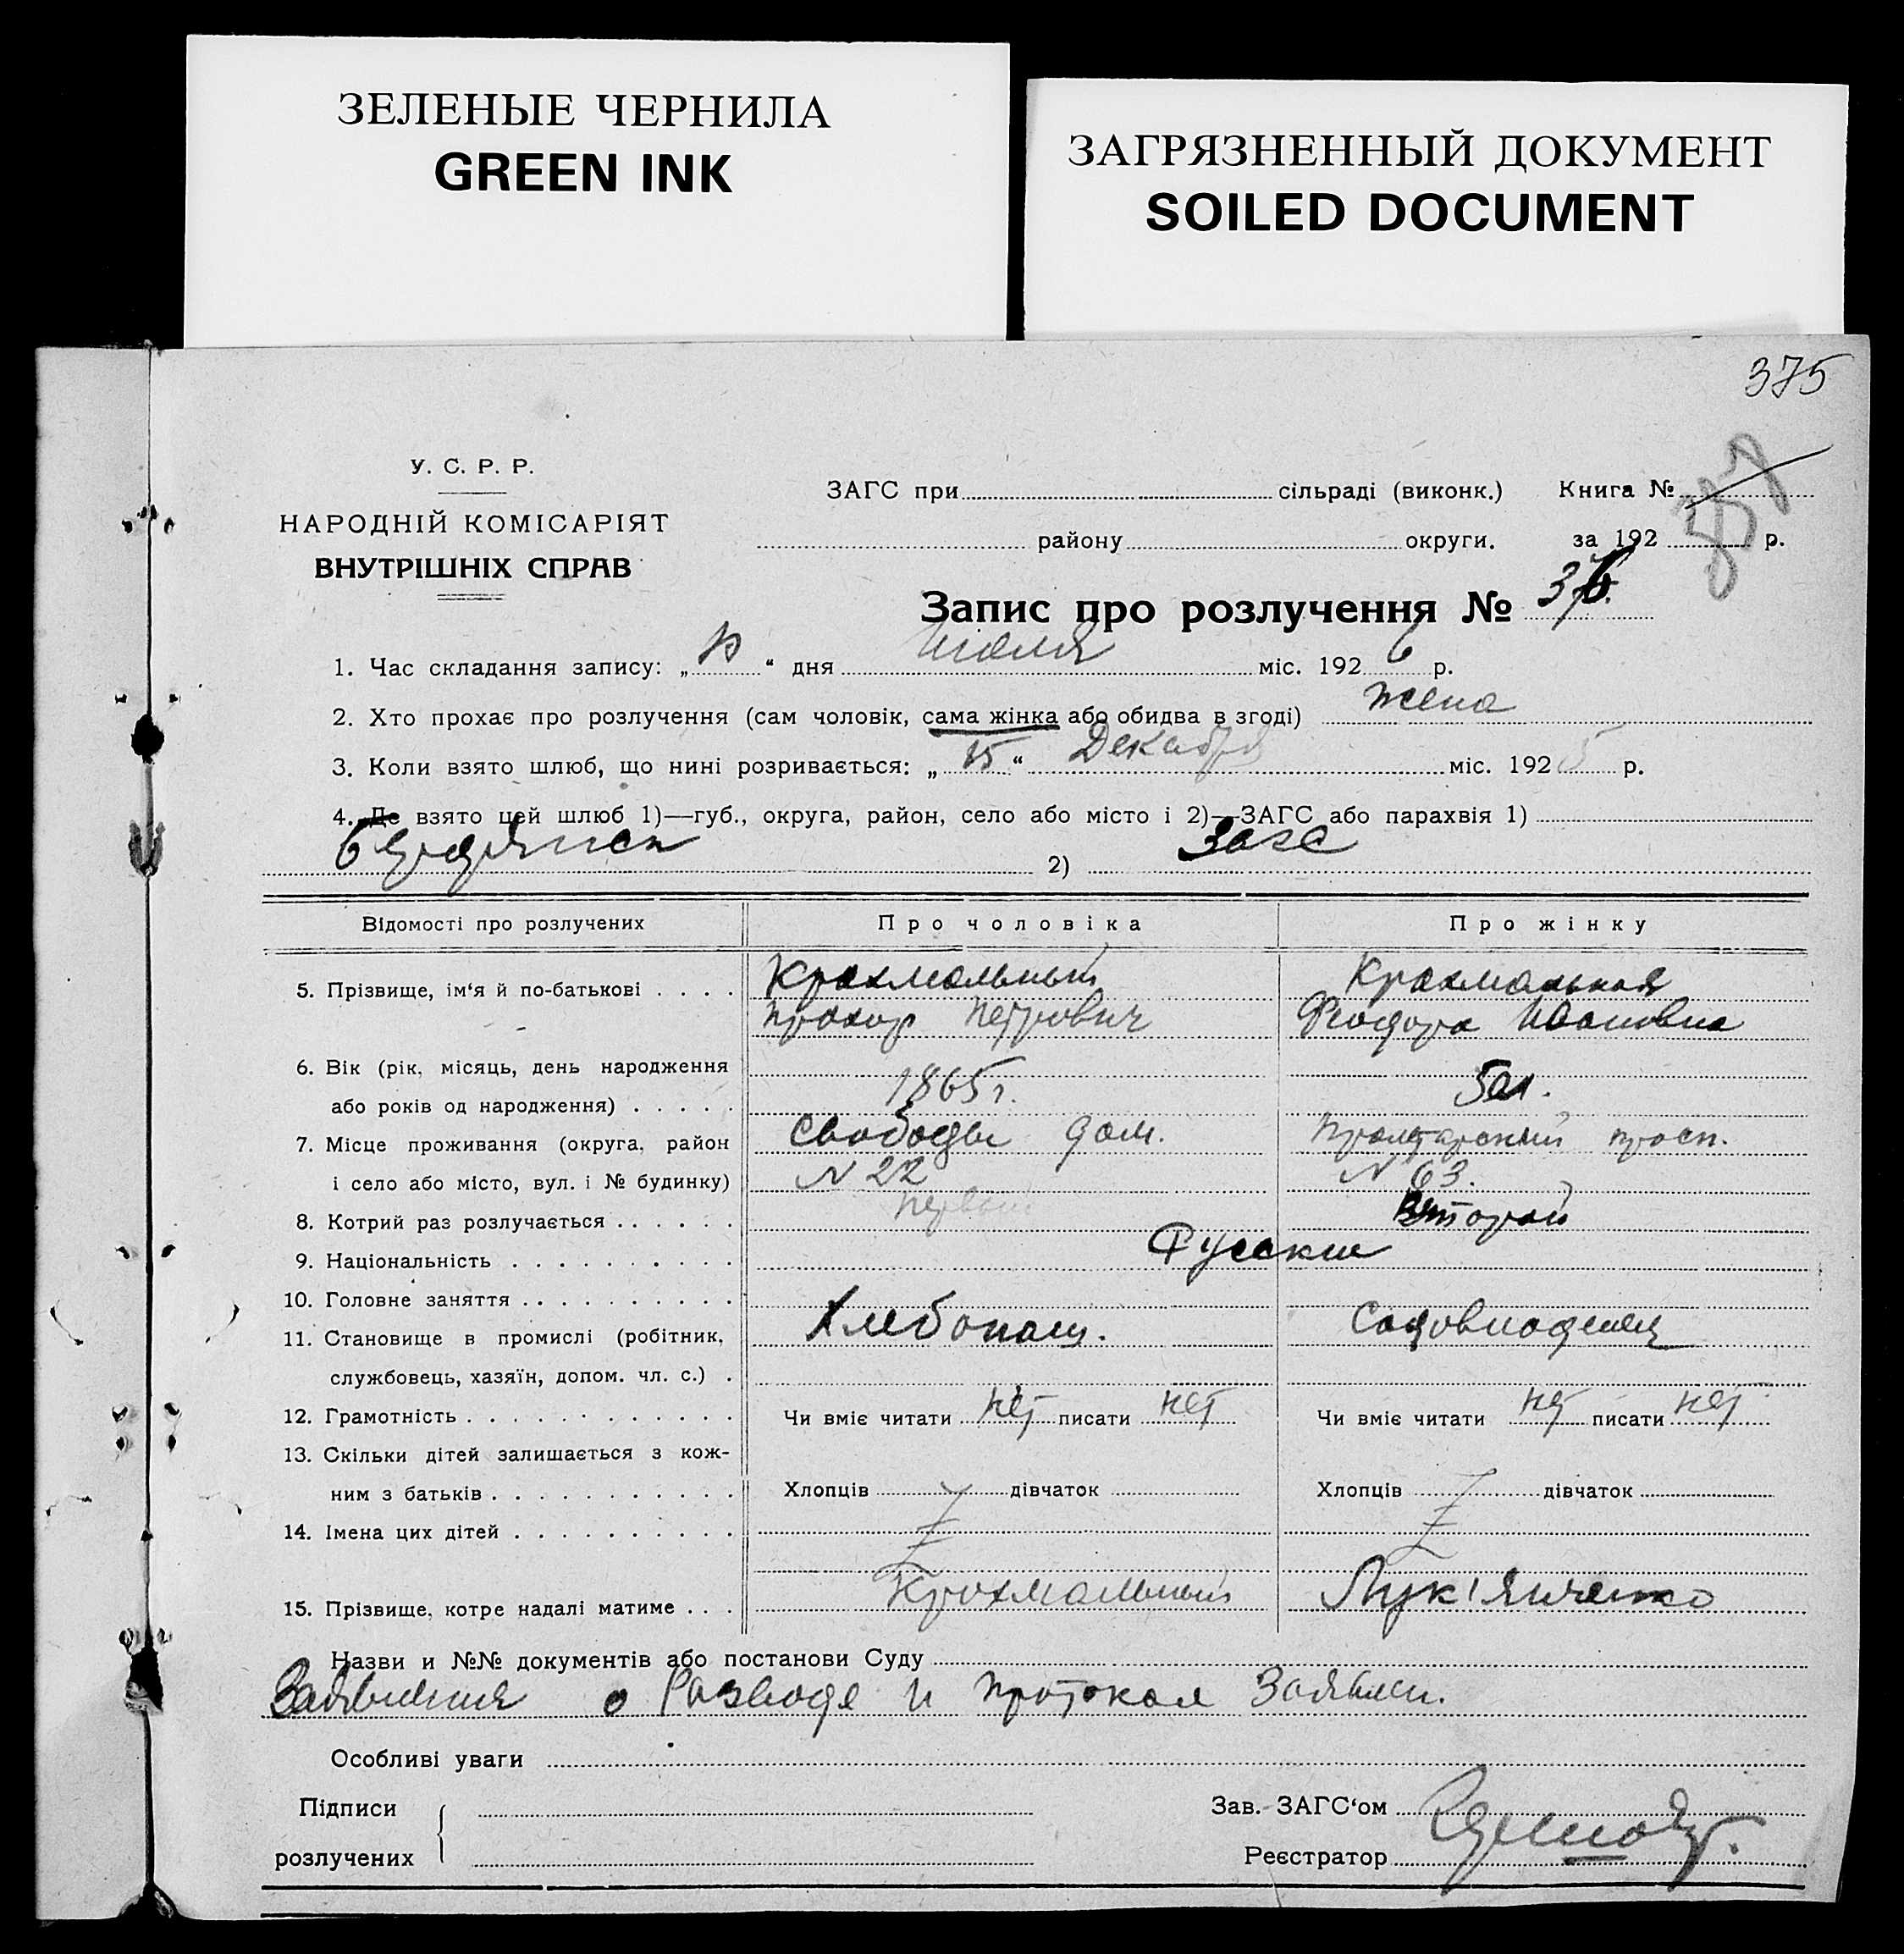 ЗЕЛЕНЫЕ ЧЕРНИЛА
GREEN INK
ЗАГРЯЗНЕННЫЙ ДОКУМЕНТ
SOILED DOCUMENT
375
У. С. Р. Р.
НАРОДНІЙ КОМІСАРІЯТ
ВНУТРІШНІХ СПРАВ
ЗАГС при сільраді (виконк.) Книга №
району округи. за 192 р.
Запис про розлучення № 376.
1. Час складання запису: „ “ дня Июля міс. 1926 р.
2. Хто прохає про розлучення (сам чоловік, сама жінка або обидва в згоді) жена
3. Коли взято шлюб, що нині розривається: „15“ Декабря міс. 1925 р.
4. Де взято цей шлюб 1)—губ., округа, район, село або місто і 2)—ЗАГС або парахвія 1)
Бердянск 2) Загс
Відомості про розлучених Про чоловіка Про жінку
5. Прізвище, ім‘я й по-батькові . . . . Крахмальный Крахмальная
Прохор Петрович Феодора Ивановна
6. Вік (рік, місяць, день народження
або років од народження) . . . . . 1865 г.
7. Місце проживання (округа, район Свободы дом. Пролетарский просп.
і село або місто, вул. і № будинку) N 22 N 63.
8. Котрий раз розлучається . . . . . . первый Второй
9. Національність . . . . . . . . . . Русские
10. Головне заняття . . . . . . . . . .
11. Становище в промислі (робітник, Хлебопащ. Садовладелец
службовець, хазяїн, допом. чл. с.) .
12. Грамотність . . . . . . . . . . . . Чи вміє читати нет писати нет Чи вміє читати нет писати нет
13. Скільки дітей залишається з кож-
ним з батьків . . . . . . . . . . . Хлопців дівчаток Хлопців дівчаток
14. Імена цих дітей . . . . . . . . . .
15. Прізвище, котре надалі матиме . . . Крохмальный Лук'янченко
Назви и №№ документів або постанови Суду
Заявления о Разводе и протокол Заявлен.
Особливі уваги
Підписи Зав. ЗАГС‘ом
розлучених Реєстратор